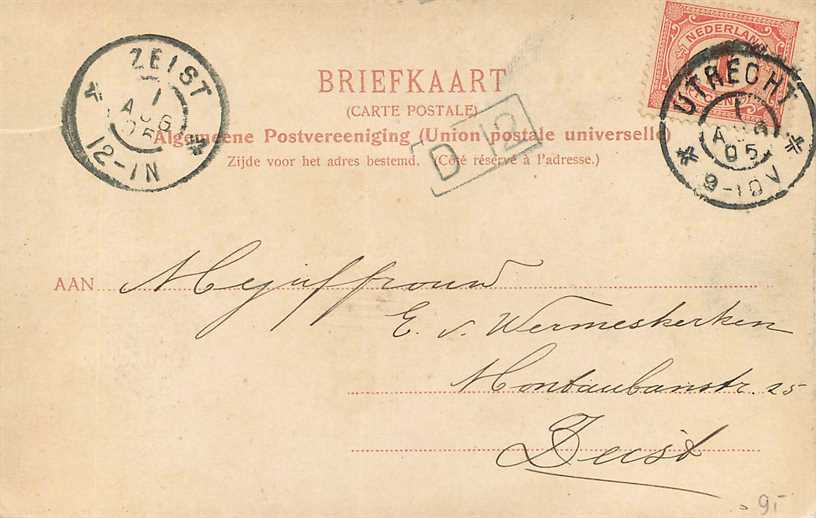 NEDERLAND
ZEIST
1
AUG
05
12-1N
UTRECHT
1
AUG
05
9-10V
BRIEFKAART
(CARTE POSTALE)
Algemeene Postvereeniging (Union postale universelle)
Zijde voor het adres bestemd. (Côté réservé à l'adresse.)
D 12
AAN Mejuffrouw
E. v. Wermeskerken
Montaubanstr. 25
Zeist
9.-